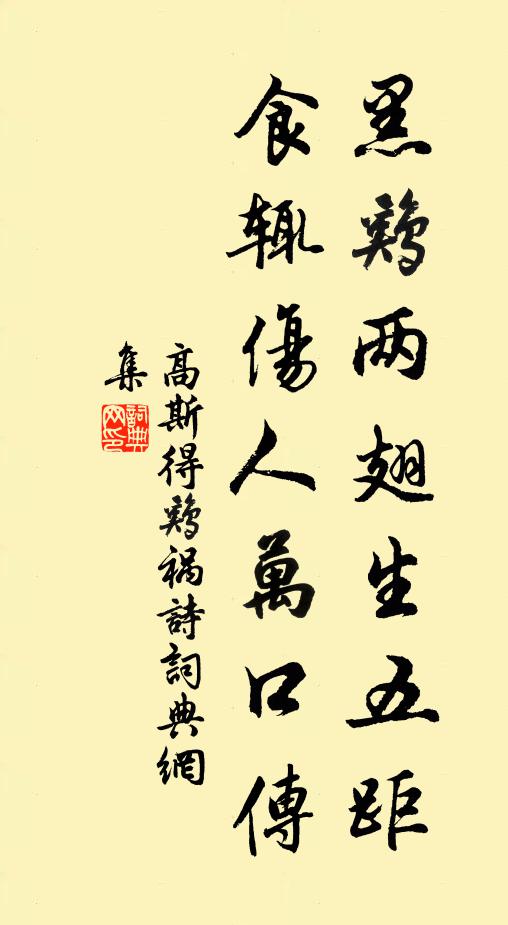 黑鷄两翅生五距
食輒傷人萬口傳
高斯得鷄禍詩詞典網
集
詞典
网印